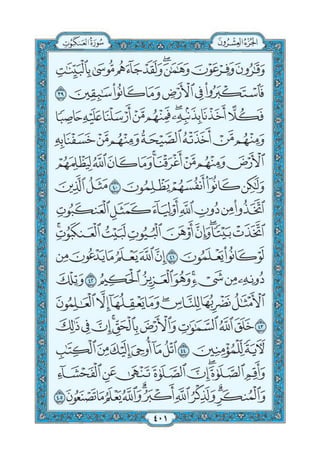 سُورَةُ العَنكَبُوت الجُزْءُ العِشْرُونَ
وَقَٰرُونَ وَفِرْعَوْنَ وَهَٰمَٰنَ ۖ وَلَقَدْ جَآءَهُم مُّوسَىٰ بِٱلْبَيِّنَٰتِ
فَٱسْتَكْبَرُوا۟ فِى ٱلْأَرْضِ وَمَا كَانُوا۟ سَٰبِقِينَ ٣٩
فَكُلًّا أَخَذْنَا بِذَنۢبِهِۦ ۖ فَمِنْهُم مَّنْ أَرْسَلْنَا عَلَيْهِ حَاصِبًا
وَمِنْهُم مَّنْ أَخَذَتْهُ ٱلصَّيْحَةُ وَمِنْهُم مَّنْ خَسَفْنَا بِهِ
ٱلْأَرْضَ وَمِنْهُم مَّنْ أَغْرَقْنَا ۚ وَمَا كَانَ ٱللَّهُ لِيَظْلِمَهُمْ
وَلَٰكِن كَانُوٓا۟ أَنفُسَهُمْ يَظْلِمُونَ ٤٠ مَثَلُ ٱلَّذِينَ
ٱتَّخَذُوا۟ مِن دُونِ ٱللَّهِ أَوْلِيَآءَ كَمَثَلِ ٱلْعَنكَبُوتِ
ٱتَّخَذَتْ بَيْتًا ۖ وَإِنَّ أَوْهَنَ ٱلْبُيُوتِ لَبَيْتُ ٱلْعَنكَبُوتِ ۖ
لَوْ كَانُوا۟ يَعْلَمُونَ ٤١ إِنَّ ٱللَّهَ يَعْلَمُ مَا يَدْعُونَ مِن
دُونِهِۦ مِن شَىْءٍ ۚ وَهُوَ ٱلْعَزِيزُ ٱلْحَكِيمُ ٤٢ وَتِلْكَ
ٱلْأَمْثَٰلُ نَضْرِبُهَا لِلنَّاسِ ۖ وَمَا يَعْقِلُهَآ إِلَّا ٱلْعَٰلِمُونَ
٤٣ خَلَقَ ٱللَّهُ ٱلسَّمَٰوَٰتِ وَٱلْأَرْضَ بِٱلْحَقِّ ۚ إِنَّ فِى ذَٰلِكَ
لَءَايَةً لِّلْمُؤْمِنِينَ ٤٤ ٱتْلُ مَآ أُوحِىَ إِلَيْكَ مِنَ ٱلْكِتَٰبِ
وَأَقِمِ ٱلصَّلَوٰةَ ۖ إِنَّ ٱلصَّلَوٰةَ تَنْهَىٰ عَنِ ٱلْفَحْشَآءِ
وَٱلْمُنكَرِ ۗ وَلَذِكْرُ ٱللَّهِ أَكْبَرُ ۗ وَٱللَّهُ يَعْلَمُ مَا تَصْنَعُونَ ٤٥
٤٠١